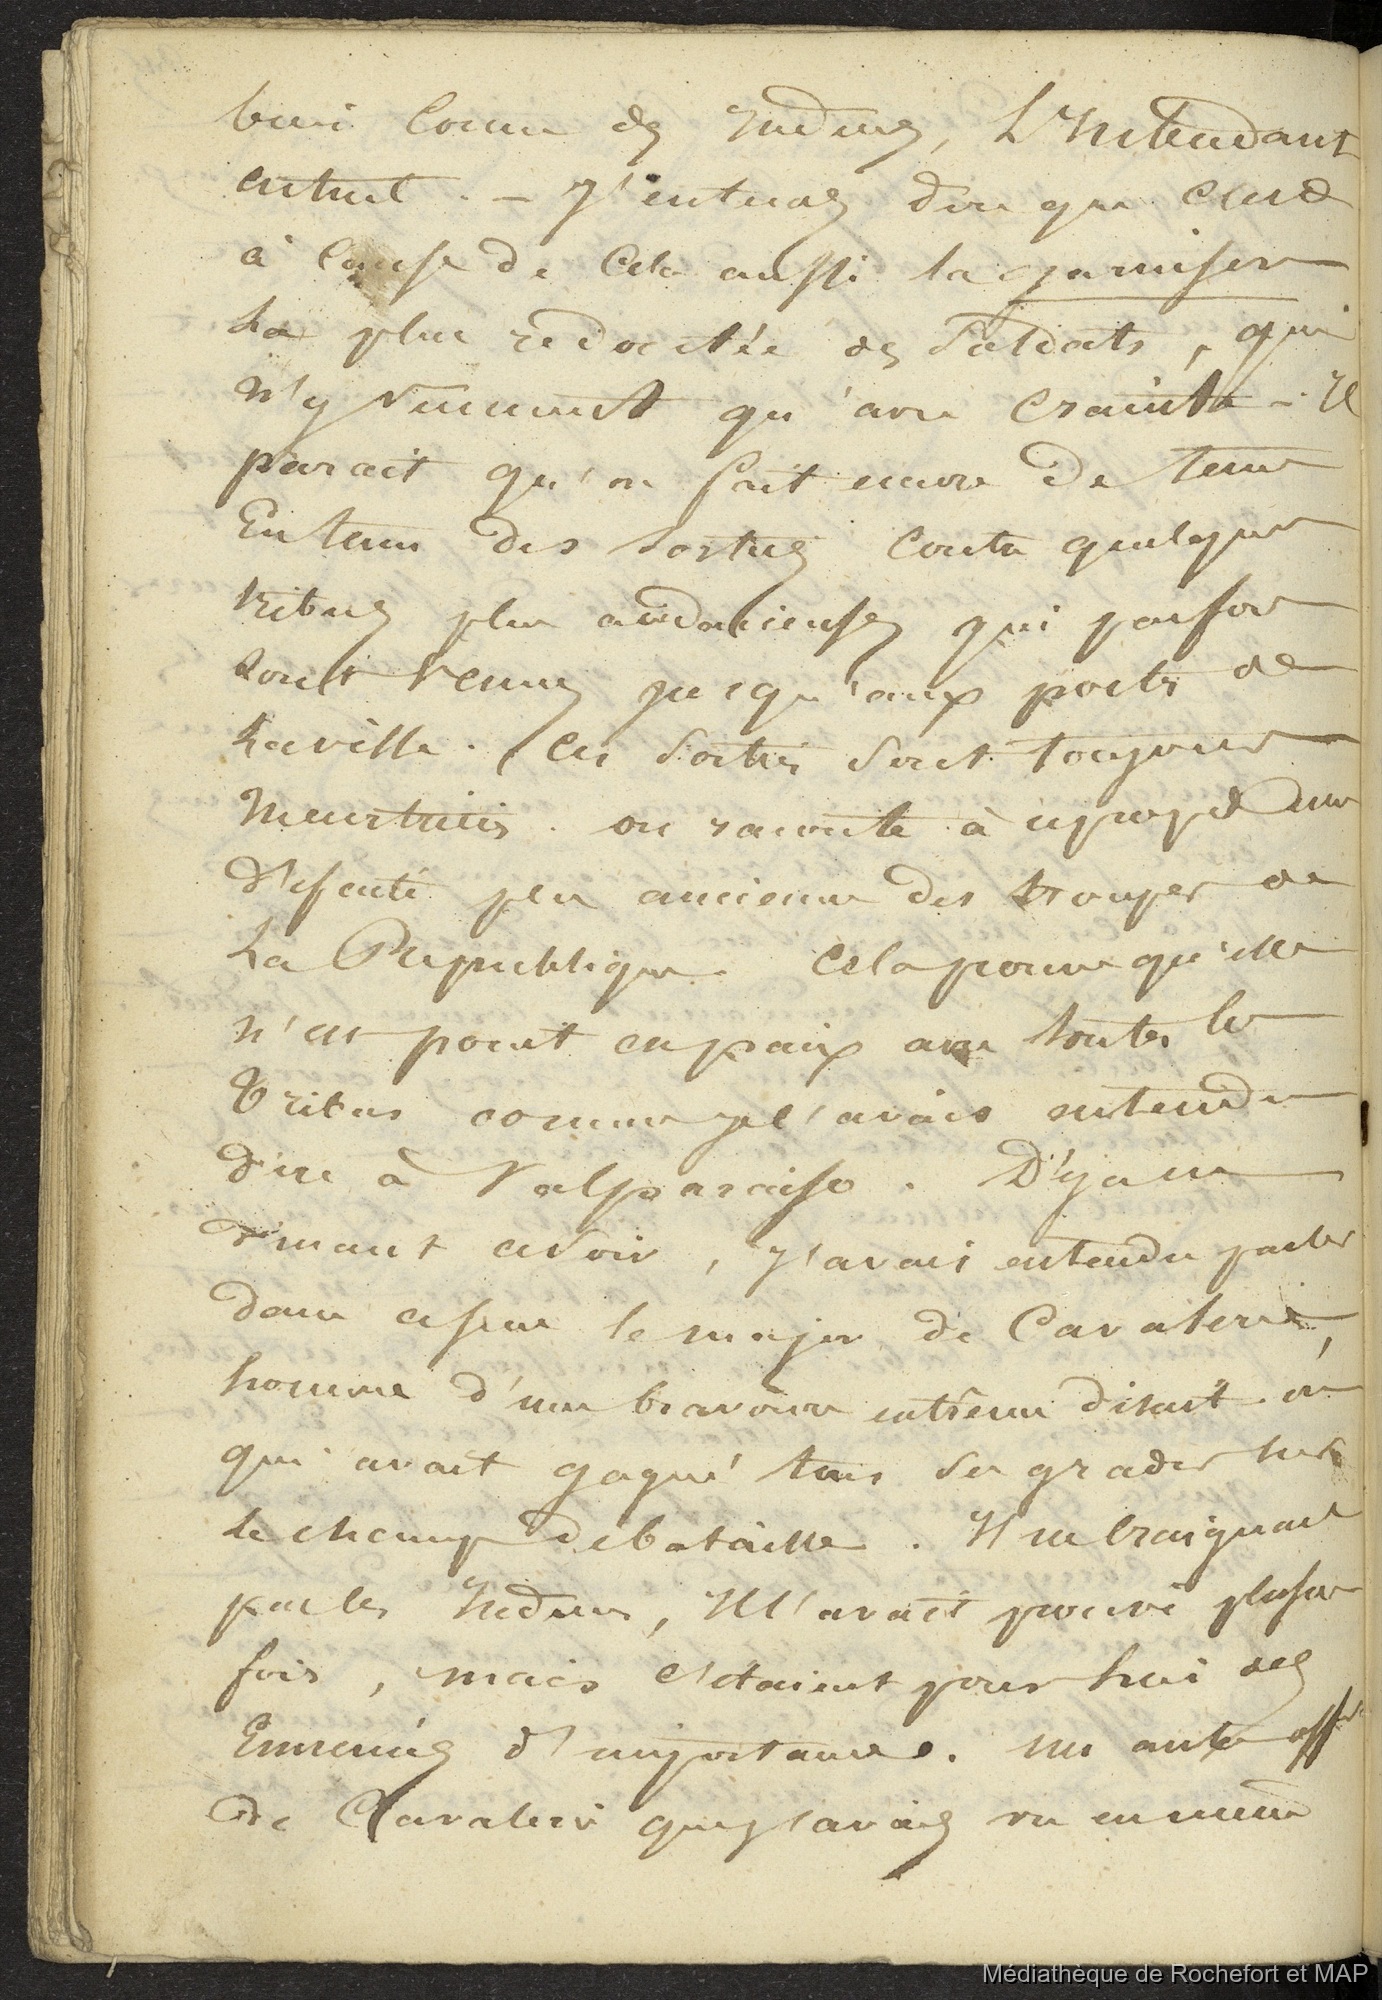 bien connu des Indiens, L'Intendant
entend. – J'entends dire que c'est
à cause de cela aussi la garnison
La plus redoutée des Soldats, qui
n'y viennent qu'avec crainte – Il
parait qu'on fait encore de tems
En tems des Sorties contre quelques
tribus plus audacieuses qui parfois
sont venues jusqu'aux portes de
La ville. Ces Sorties sont toujours
Meurtrières. on raconte à ce propos une
défaite peu ancienne des troupes de
La République. Cela prouve qu'elle
n'est point en paix avec toutes les
Tribus comme je l'avais entendu
dire à Valparaiso. Déja en
venant à voir, J'avais entendu parler
dans ce sens le major de Cavalerie,
homme d'une bravoure extrême disait-on
qui avait gagné tous ses grades sur
Le champ de bataille. Il ne craignait
pas les Indiens, Il l'avait prouvé plusieurs
fois, mais c'étaient pour lui des
Ennemis d'importance. un autre off
de Cavalerie que j'avais vu en même